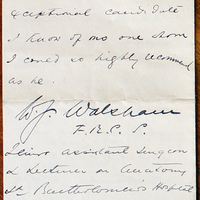 exceptional candidate
I know of no one whom
I could so highly recommend
as he.
W. J. Walsham
F.R.C.S.
Senior assistant surgeon
& Lecturer on Anatomy
St. Bartholomew's Hospital